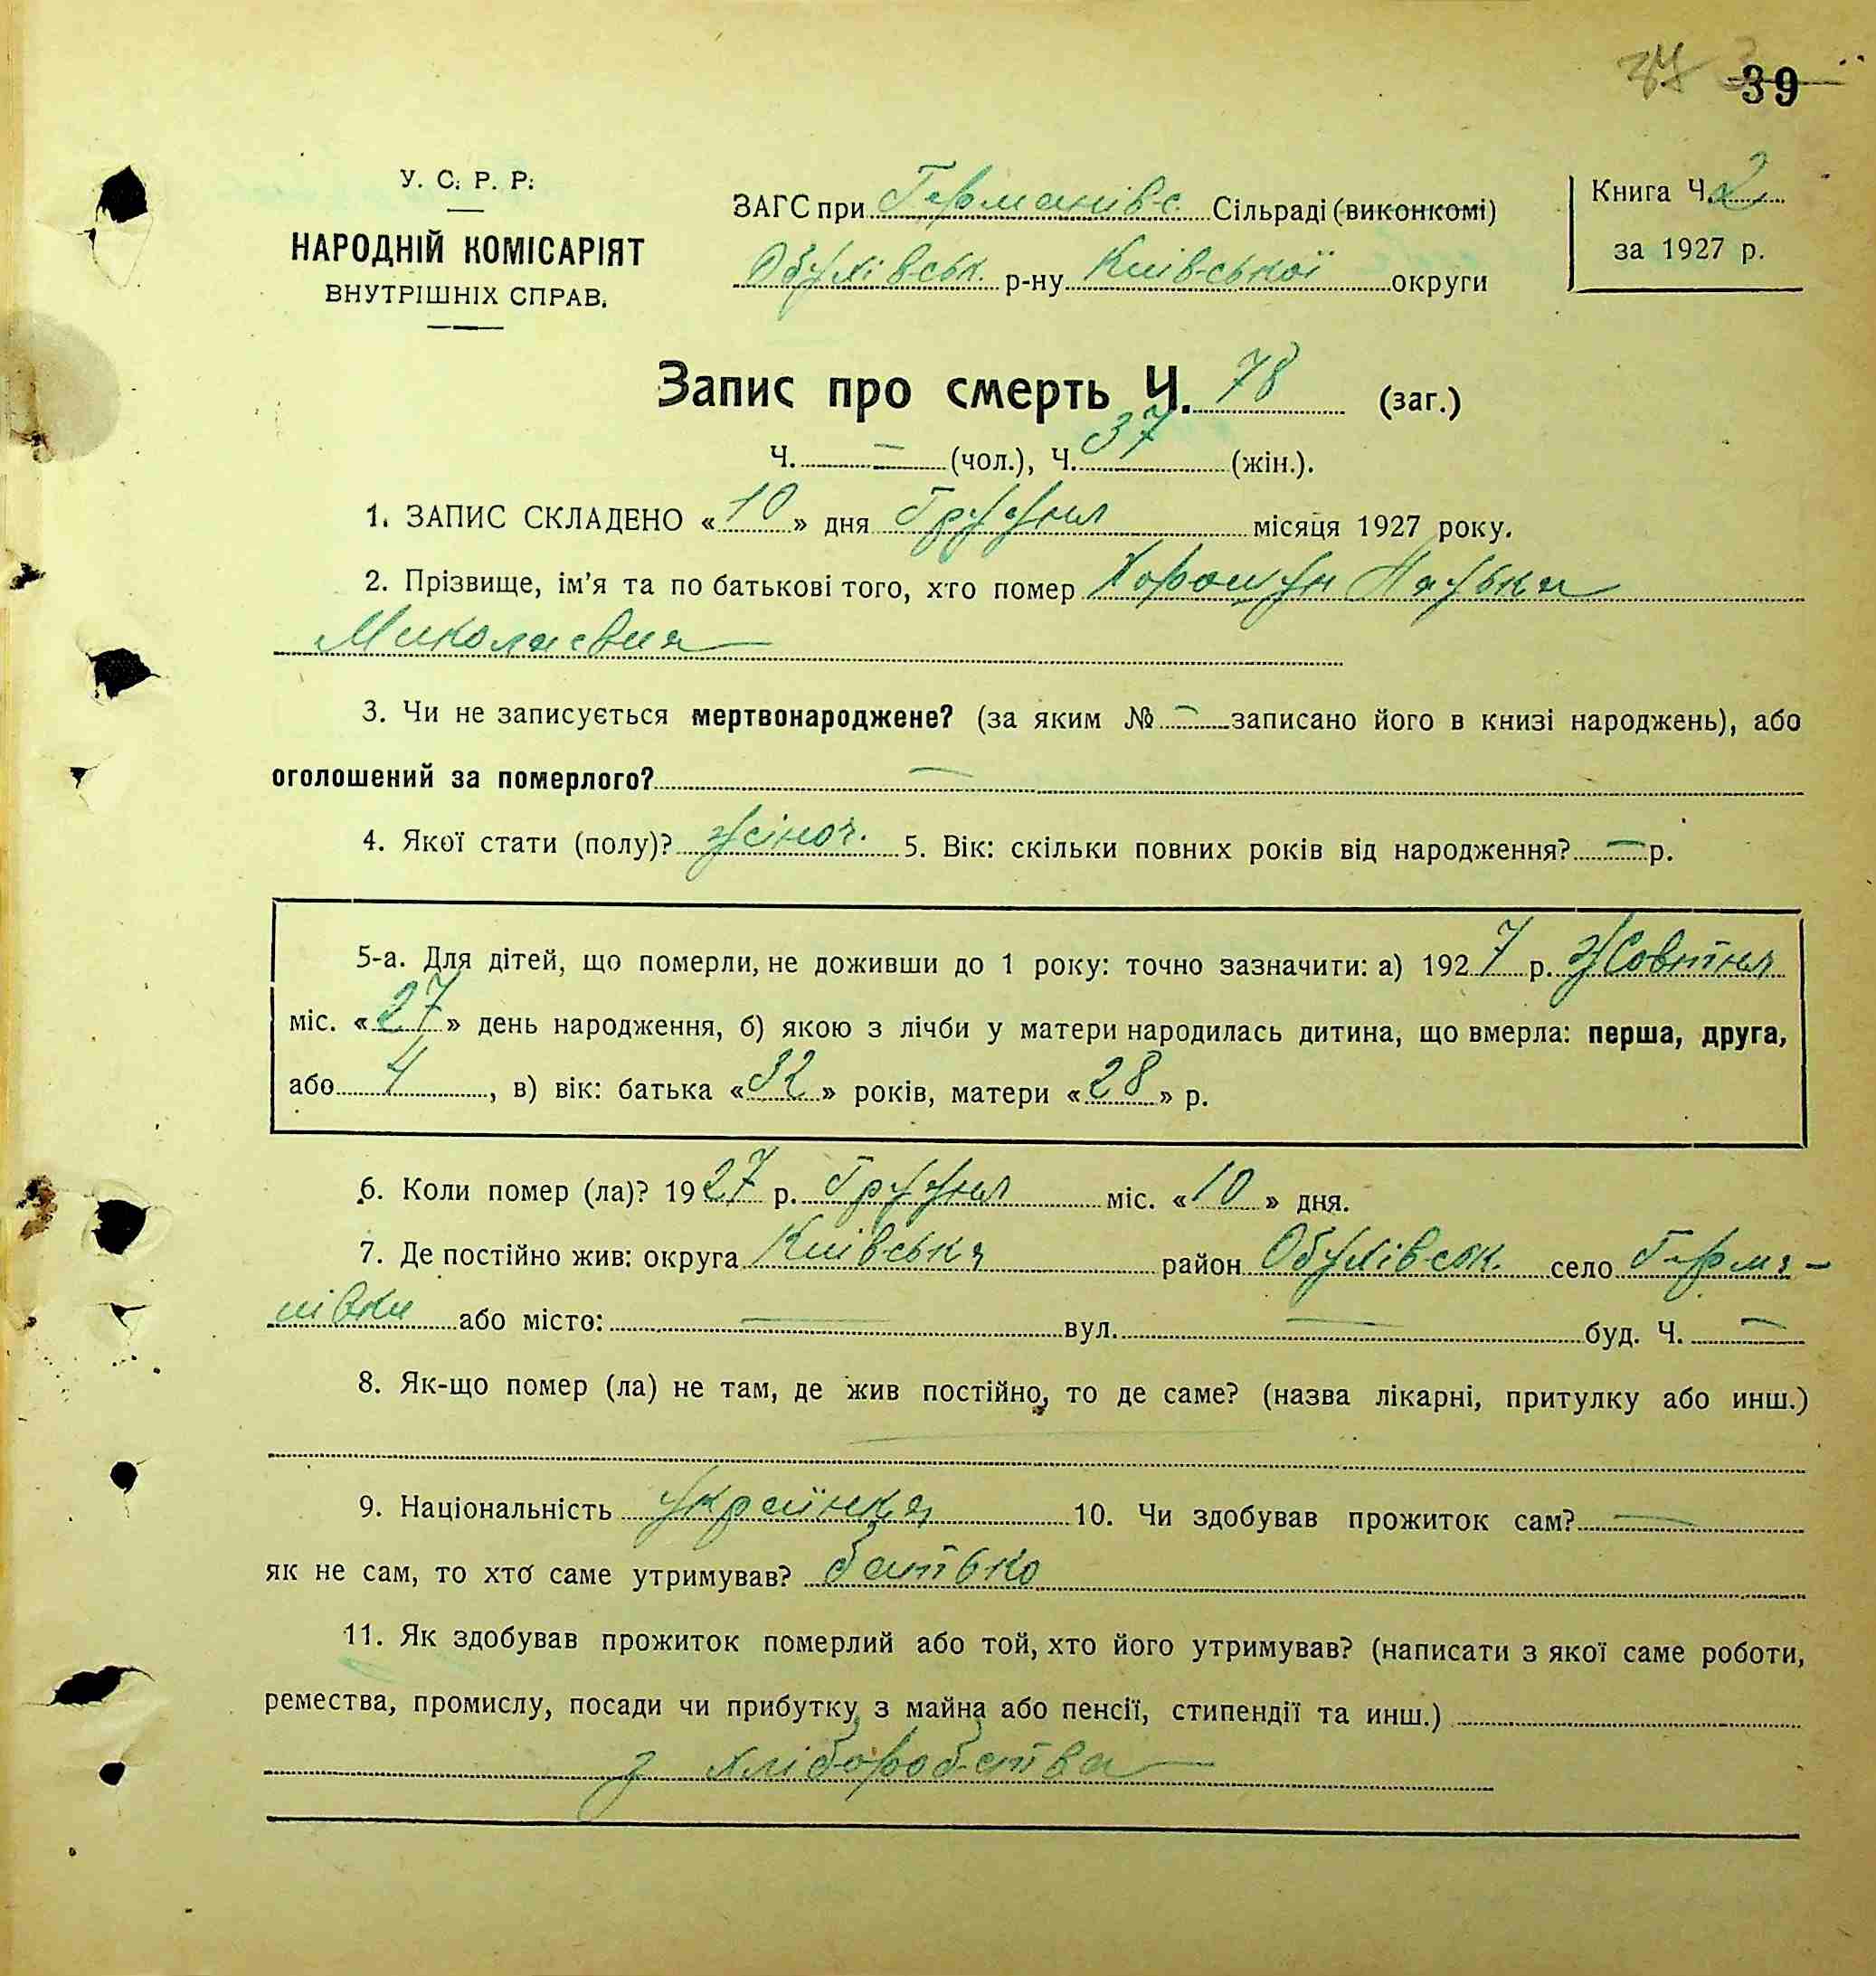 39
У. С. Р. Р.
НАРОДНІЙ КОМІСАРІЯТ
ВНУТРІШНІХ СПРАВ.
ЗАГС при Германівс. Сільраді (виконкомі)
Обухівськ. р-ну Київської округи
Книга Ч. 2
за 1927 р.
Запис про смерть Ч. 78 (заг.)
Ч. — (чол.), Ч. 37 (жін.).
1. ЗАПИС СКЛАДЕНО «10» дня Грудня місяця 1927 року.
2. Прізвище, ім’я та по батькові того, хто помер Хорошун
Миколаєвна
3. Чи не записується мертвонароджене? (за яким № — записано його в книзі народжень), або
оголошений за померлого? —
4. Якої стати (полу)? жіноч. 5. Вік: скільки повних років від народження? — р.
5-а. Для дітей, що померли, не доживши до 1 року: точно зазначити: а) 1927 р. Жовтня
міс. «27» день народження, б) якою з лічби у матери народилась дитина, що вмерла: перша, друга,
або 4, в) вік: батька «32» років, матери «28» р.
6. Коли помер (ла)? 1927 р. Грудня міс. «10» дня.
7. Де постійно жив: округа Київська район Обухівськ. село Герма-
нівки або місто: — вул. — буд. Ч. —
8. Як-що помер (ла) не там, де жив постійно, то де саме? (назва лікарні, притулку або инш.)
9. Національність українка 10. Чи здобував прожиток сам? —
як не сам, то хто саме утримував? батько
11. Як здобував прожиток померлий або той, хто його утримував? (написати з якої саме роботи,
ремества, промислу, посади чи прибутку з майна або пенсії, стипендії та инш.)
з хліборобства